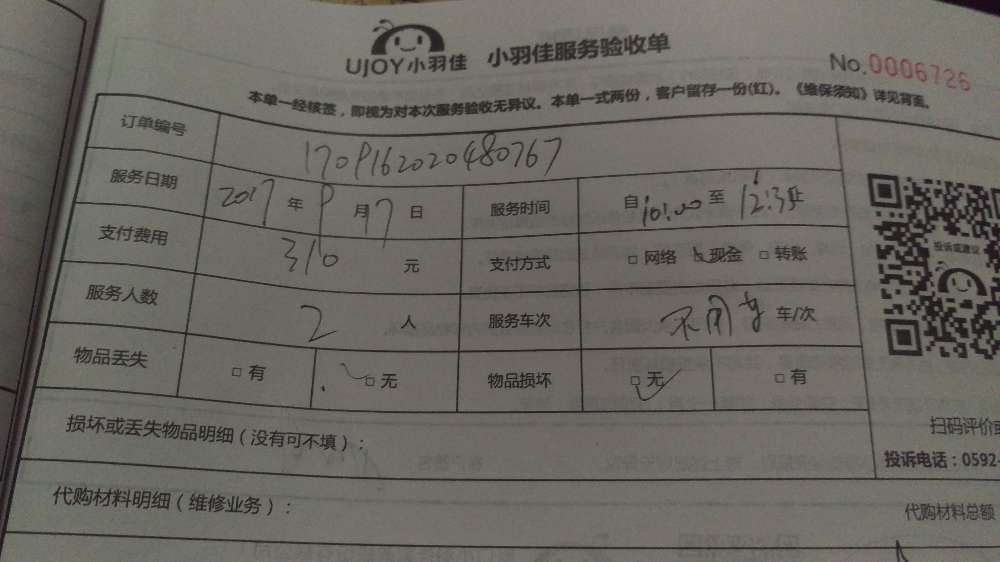 UJOY小羽佳 小羽佳服务验收单
No.0006726
本单一经核签，即视为对本次服务验收无异议。本单一式两份，客户留存一份(红)。《维保须知》详见背面。
订单编号 170916202048076​7
服务日期 2017年9月17日 服务时间 自10:00至12:30止
支付费用 310元 支付方式 □网络 □现金 □转账
服务人数 2人 服务车次 不用车 车/次
物品丢失 □有 □无 物品损坏 □无 □有
投诉或建议
损坏或丢失物品明细（没有可不填）：
扫码评价或
投诉电话：0592-
代购材料明细（维修业务）：
代购材料总额